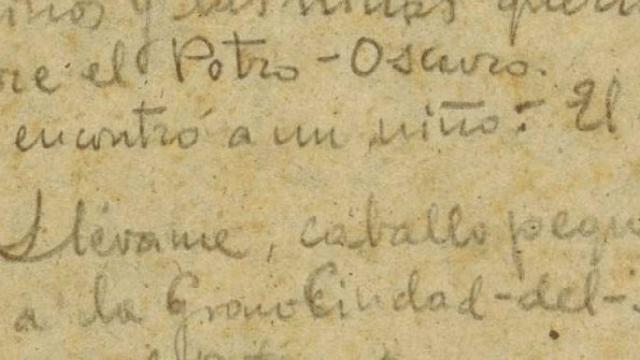 y las niñas
el Potro-Oscuro.
encontró a un niño: El
Llévame, caballo pequ
a la Gran Ciudad-del-